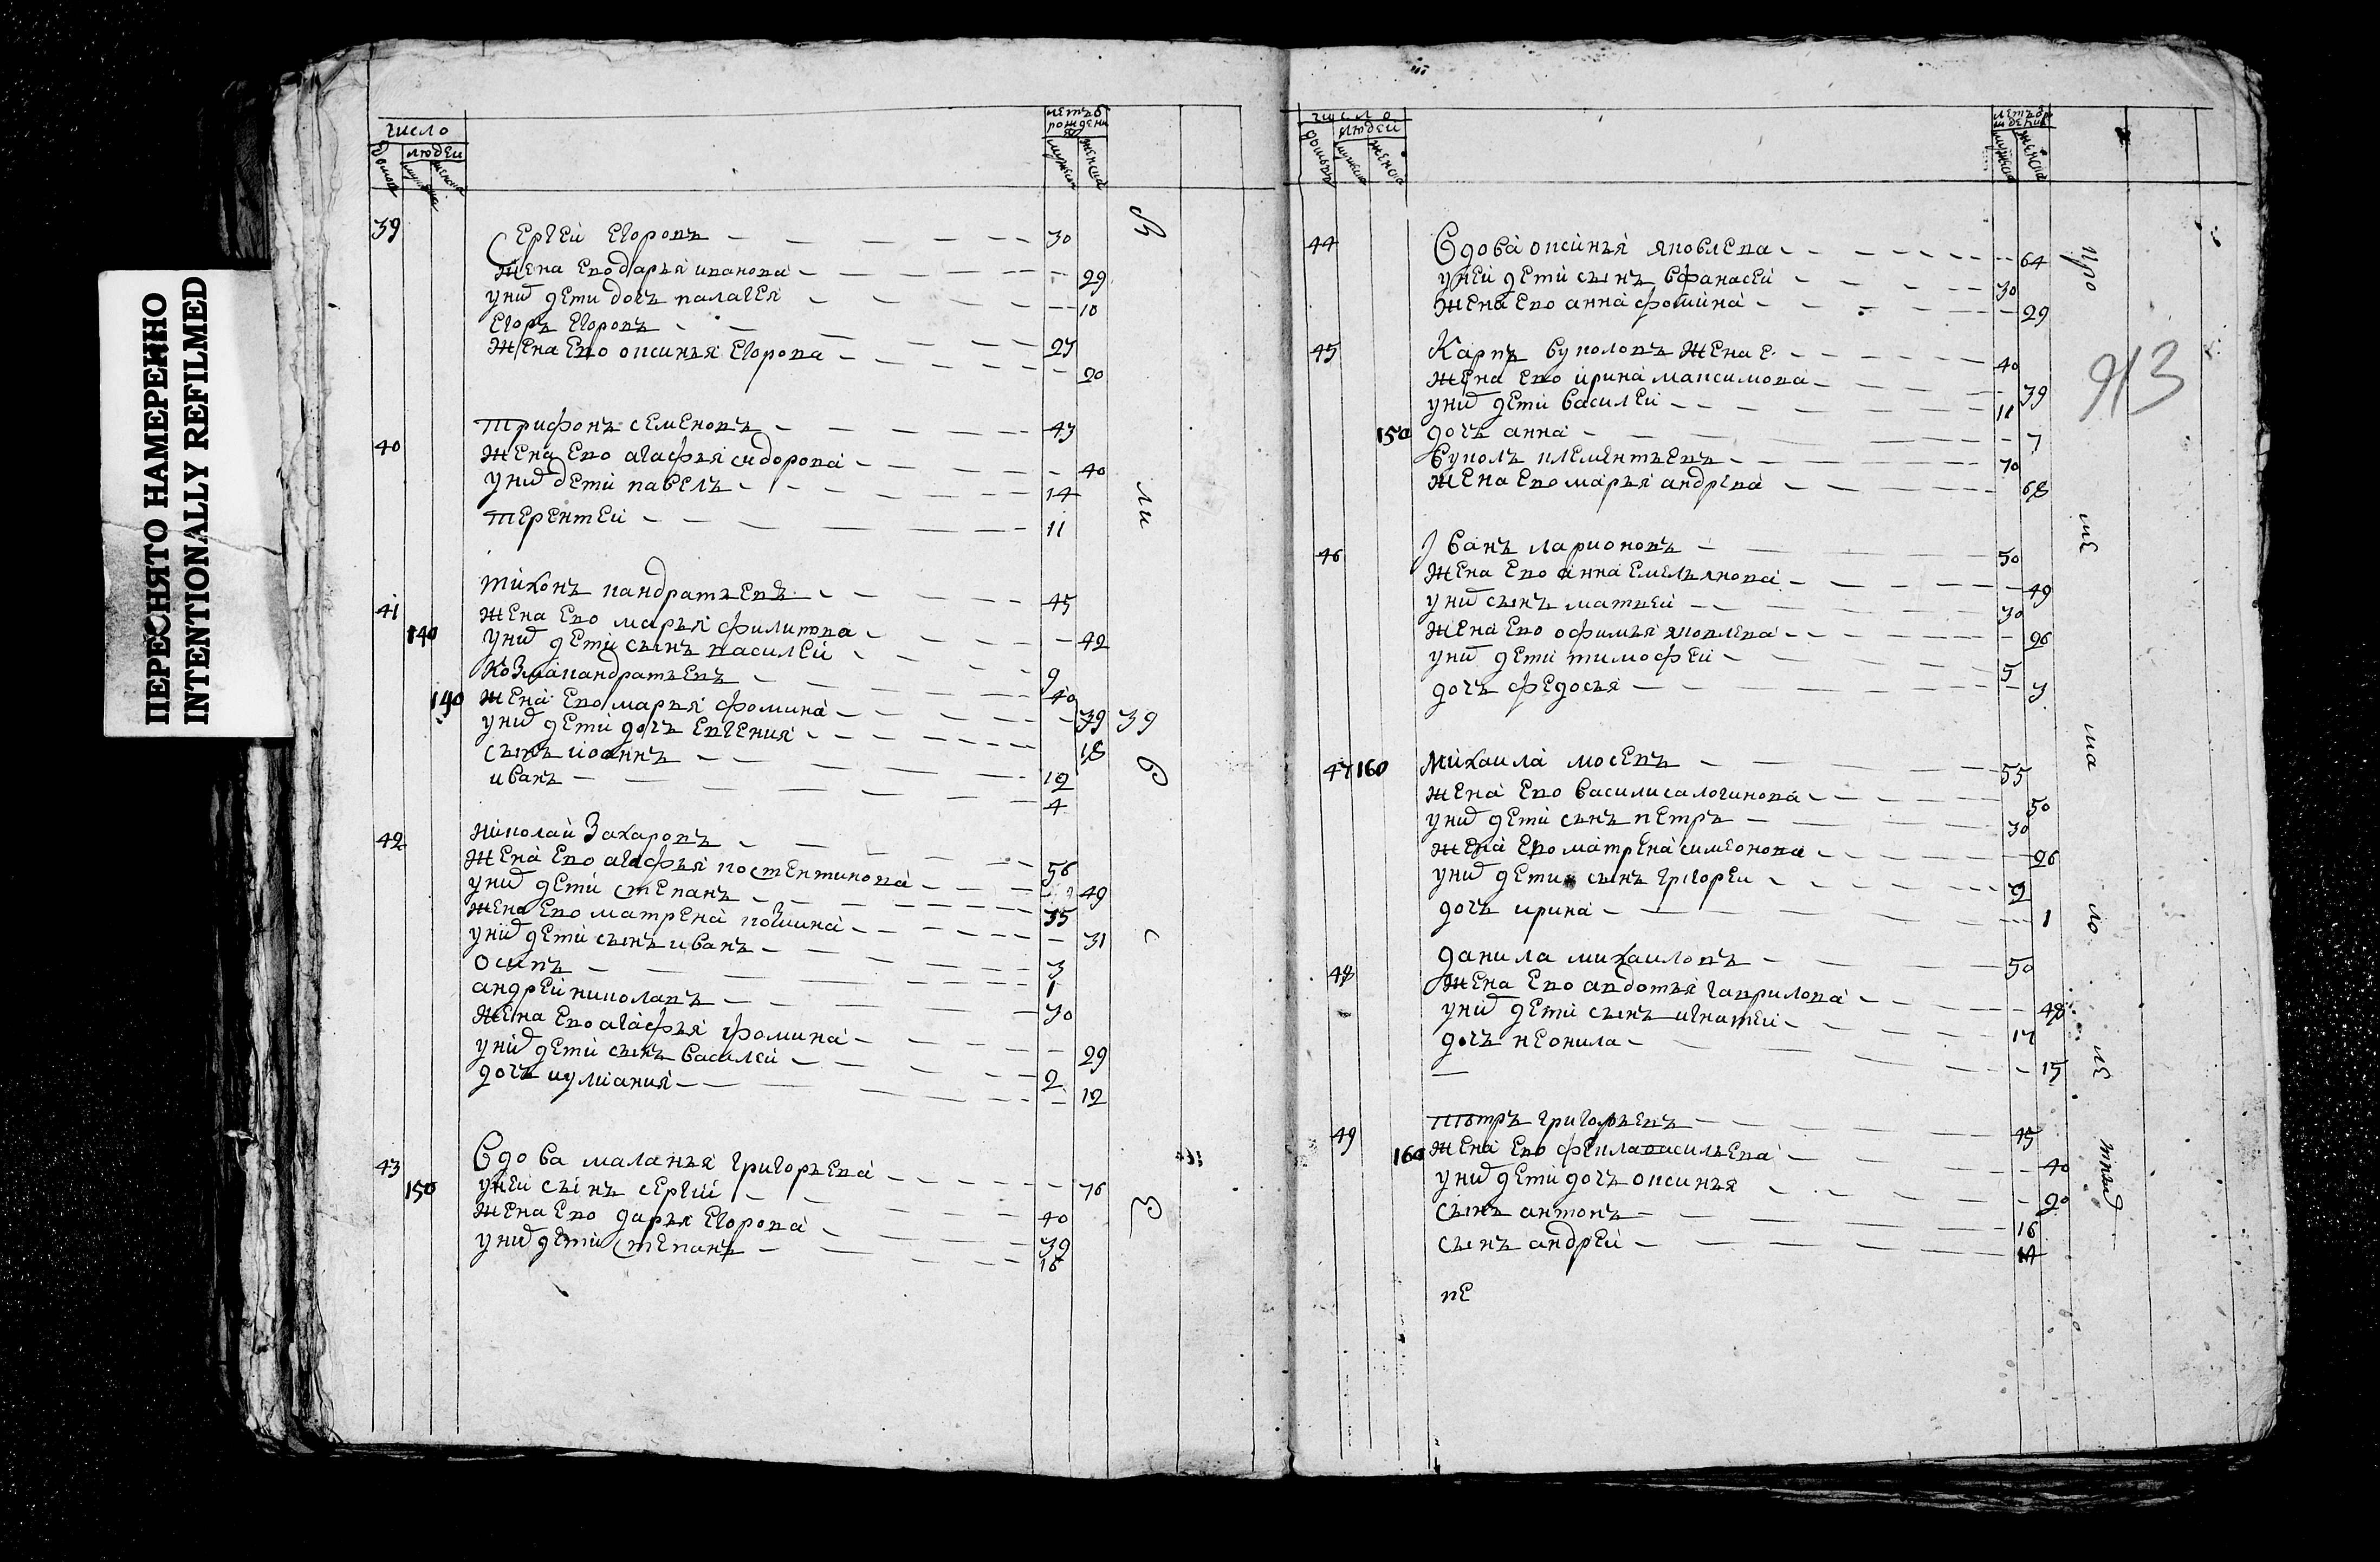 ПЕРЕСНЯТО НАМЕРЕННО
INTENTIONALLY REFILMED
число
людей
летъ ѿ рождения
мужеска
женска
39 Сергеи Егоровъ 30
жена Ево дарья иванова 29
у них дети дочь палагея 10
Егоръ Егоровъ 27
жена Ево оксинья Егорова 20
40 трифонъ семеновъ 43
жена Ево агафья сидорова 40
у них дети павелъ 14
терентеи 11
41 тихонъ кандратьевъ 45
140 жена Ево марья филипова 42
у них дети сынъ василеи 9
козма кандратьевъ 40
140 жена Ево марья фомина 39 39
у них дети дочь Евгения 18
сынъ иоаннъ 12
иванъ 4
42 николаи Захаровъ 56
жена Ево агафья костентинова 49
у них дети степанъ 35
жена Ево матрена козмина 31
у них дети сынъ иванъ 3
осипъ 1
андреи николавъ 30
жена Ево агафья фомина 29
у них дети сынъ василеи 2
дочь иулиания 12
43 Вдова маланья григорьева 76
150 у неи сынъ сергии 40
жена Ево дарья Егорова 39
у них дети степанъ 16
число
людей
мужеска
женска
44 Вдова оксинья яковлева 64
у неи дети сынъ Афанасеи 30
жена Ево анна фомина 29
45 Карпъ вуколовъ жена Е 40
жена Ево ирина максимова 39
у них дети василеи 11
150 дочь анна 7
вуколъ клементьевъ 70
жена Ево марья андрева 68
46 Иванъ ларионовъ 50
жена Ево анна Емельянова 49
у них сынъ матвеи 30
жена Ево офимья яковлева 26
у них дети тимофеи 5
дочь федосья 3
47 160 михаила мосевъ 55
жена Ево василиса логинова 50
у них дети сынъ петръ 30
жена Ево матрена симеонова 26
у них дети сынъ григореи 2
дочь ирина 1
48 данила михаиловъ 50
жена Ево авдотья гаврилова 48
у них дети сынъ игнатеи 17
дочь неонила 15
49 Пѣтръ григорьевъ 45
160 жена Ево фекла васильева 40
у них дети дочь оксинья 20
сынъ антонъ 16
сынъ андреи 14
ве
про
ме
ма
ло
ле